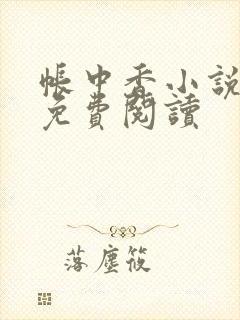 帳中香小說
免費閱讀
落塵筱